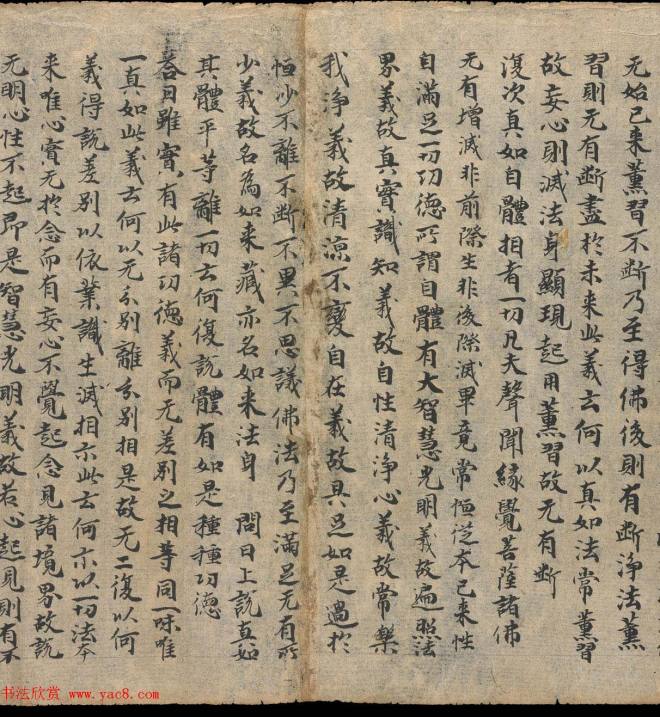 无始已来薰習不断乃至得佛後則有断浄法薰
習則无有断盡於未来此義云何以真如法常薰習
故妄心則滅法身顯現起用薰習故无有断
復次真如自體相者一切凡夫聲聞緣覺菩薩諸佛
无有增減非前際生非後際滅畢竟常恒從本已来性
自滿足一切功德所謂自體有大智慧光明義故遍照法
界義故真實識知義故自性清浄心義故常樂
我浄義故清凉不變自在義故具足如是過於
恒沙不離不断不異不思議佛法乃至滿足无有所
少義故名為如来藏亦名如来法身 問曰上說真如
其體平等離一切云何復說體有如是種種功德
荅曰雖實有此諸功德義而无差別之相等同一味唯
一真如此義云何以无分別離分別相是故无二復以何
義得說差別以依業識生滅相示此云何示以一切法本
来唯心實无於念而有妄心不覺起念見諸境界故說
无明心性不起即是智慧光明義故若心起見則有不
书法欣赏 www.yac8.com